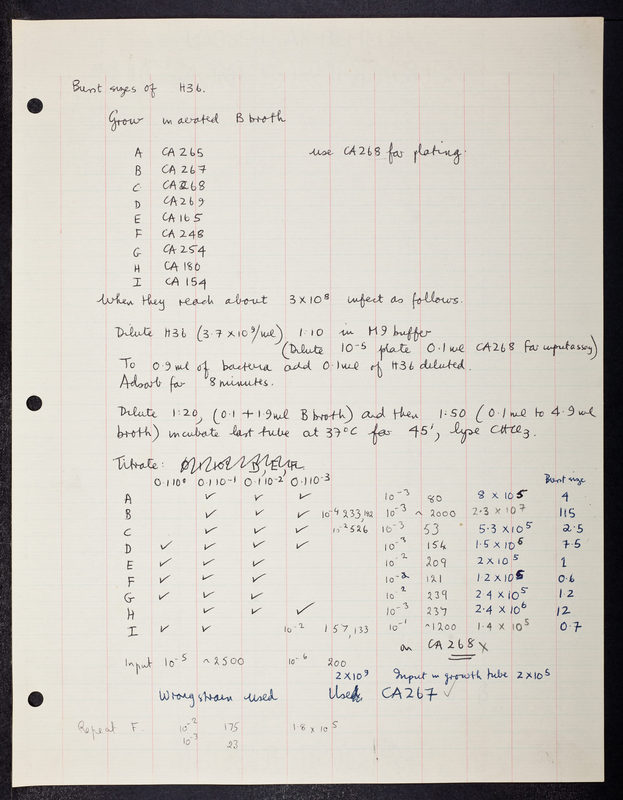 Burst sizes of H36.
Grow in aerated B broth
A CA265 use CA268 for plating.
B CA267
C CA268
D CA269
E CA165
F CA248
G CA254
H CA180
I CA154
When they reach about 3x10⁸ infect as follows.
Dilute H36 (3.7 x 10⁹/ml) 1:10 in M9 buffer
(Dilute 10⁻⁵ plate 0.1ml CA268 for input assay)
To 0.9ml of bacteria add 0.1ml of H36 diluted.
Adsorb for 8 minutes.
Dilute 1:20, (0.1 + 1.9ml B broth) and then 1:50 (0.1ml to 4.9ml
broth) incubate last tube at 37°C for 45', lyse CHCl₃.
Titrate:
0.1 10⁰ 0.1 10⁻¹ 0.1 10⁻² 0.1 10⁻³ Burst size
A ✓ ✓ ✓ 10⁻³ 80 8 x 10⁵ 4
B ✓ ✓ ✓ 10⁻⁴ 233,192 10⁻³ ~2000 2.3 x 10⁷ 115
C ✓ ✓ ✓ 10⁻² 526 10⁻³ 53 5.3 x 10⁵ 2.5
D ✓ ✓ ✓ ✓ 10⁻³ 154 1.5 x 10⁶ 7.5
E ✓ ✓ ✓ 10⁻² 209 2 x 10⁵ 1
F ✓ ✓ ✓ 10⁻² 121 1.2 x 10⁵ 0.6
G ✓ ✓ ✓ 10² 239 2.4 x 10⁵ 1.2
H ✓ ✓ ✓ 10⁻³ 237 2.4 x 10⁶ 12
I ✓ ✓ 10⁻² 157,133 10⁻¹ ~1200 1.4 x 10⁵ 0.7
on CA268 x
Input 10⁻⁵ ~2500 10⁻⁶ 200
2x10⁹ Input in growth tube 2x10⁵
Wrong strain used Used CA267 ✓
Repeat F. 10⁻² 175 1.8 x 10⁵
10⁻³ 23